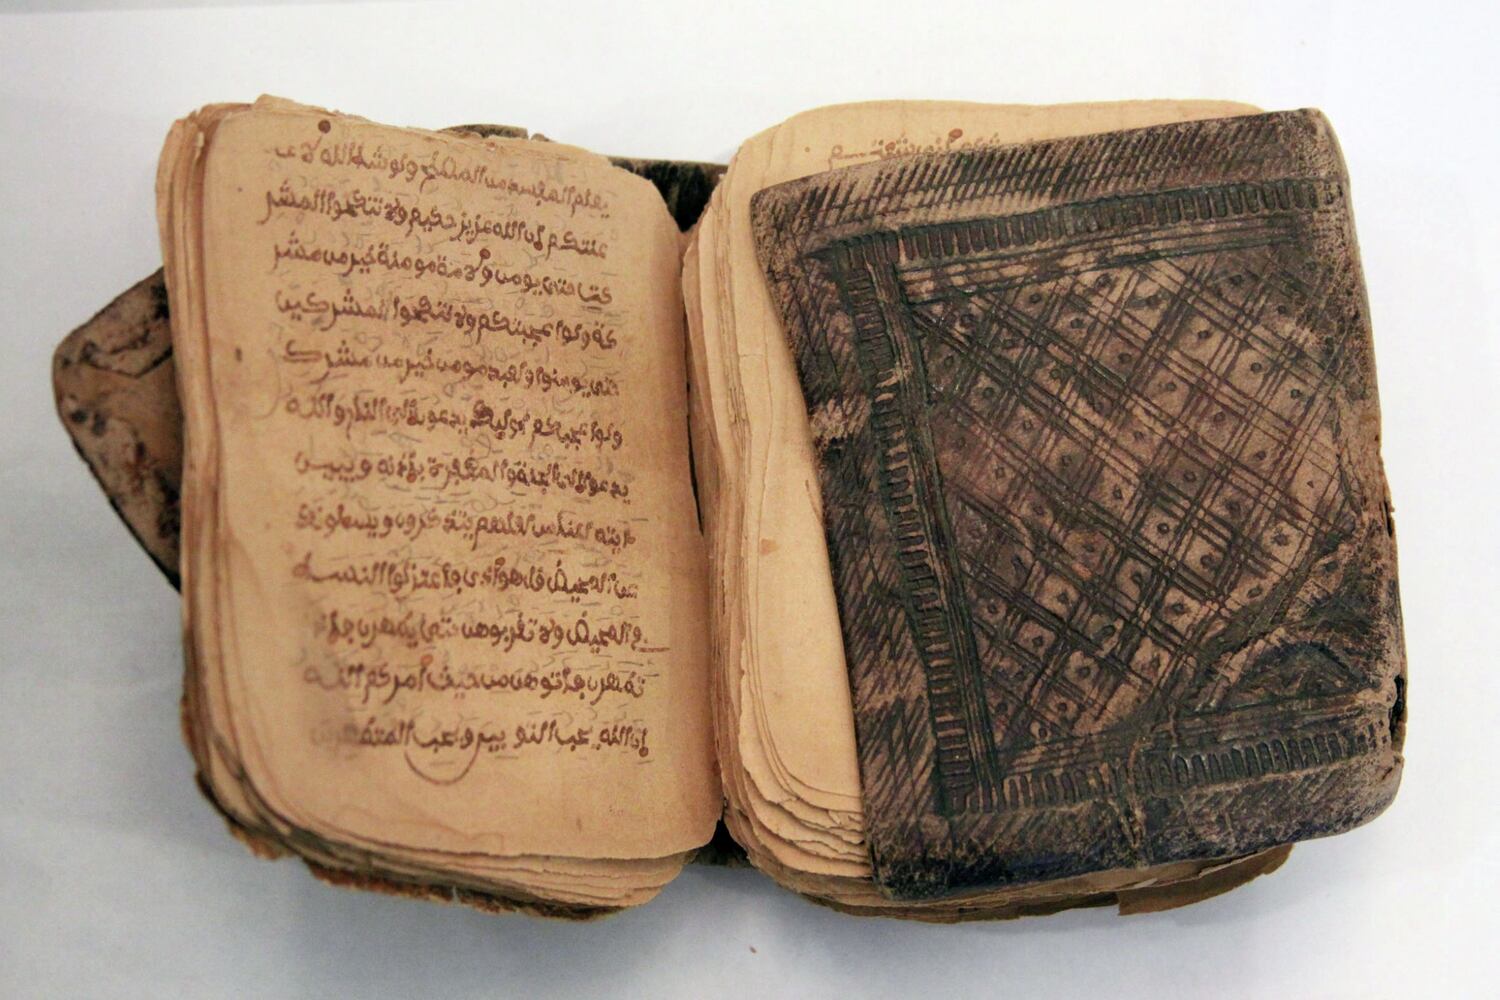 يعلم المفسد من المصلح ولو شا الله لا
عنتكم ان الله عزيز حكيم ولا تنكحوا المشر
كت حتى يومن ولامة مومنة خير من مشر
كة ولوا عجبتكم ولا تنكحوا المشركين
حتى يومنوا ولعبد مومن خير من مشرك
ولوا عجبكم اوليك يدعون الى النار والله
يدعوا الى الجنة والمغفرة بإذنه ويبين
ءايته للناس لعلهم يتذكرون ويسلونك
عن المحيض قل هو أذى فاعتزلوا النسا
في المحيض ولا تقربوهن حتى يطهرن فإذا
تطهرن فاتوهن من حيث أمركم الله
ان الله يحب التوبين ويحب المتطهرين